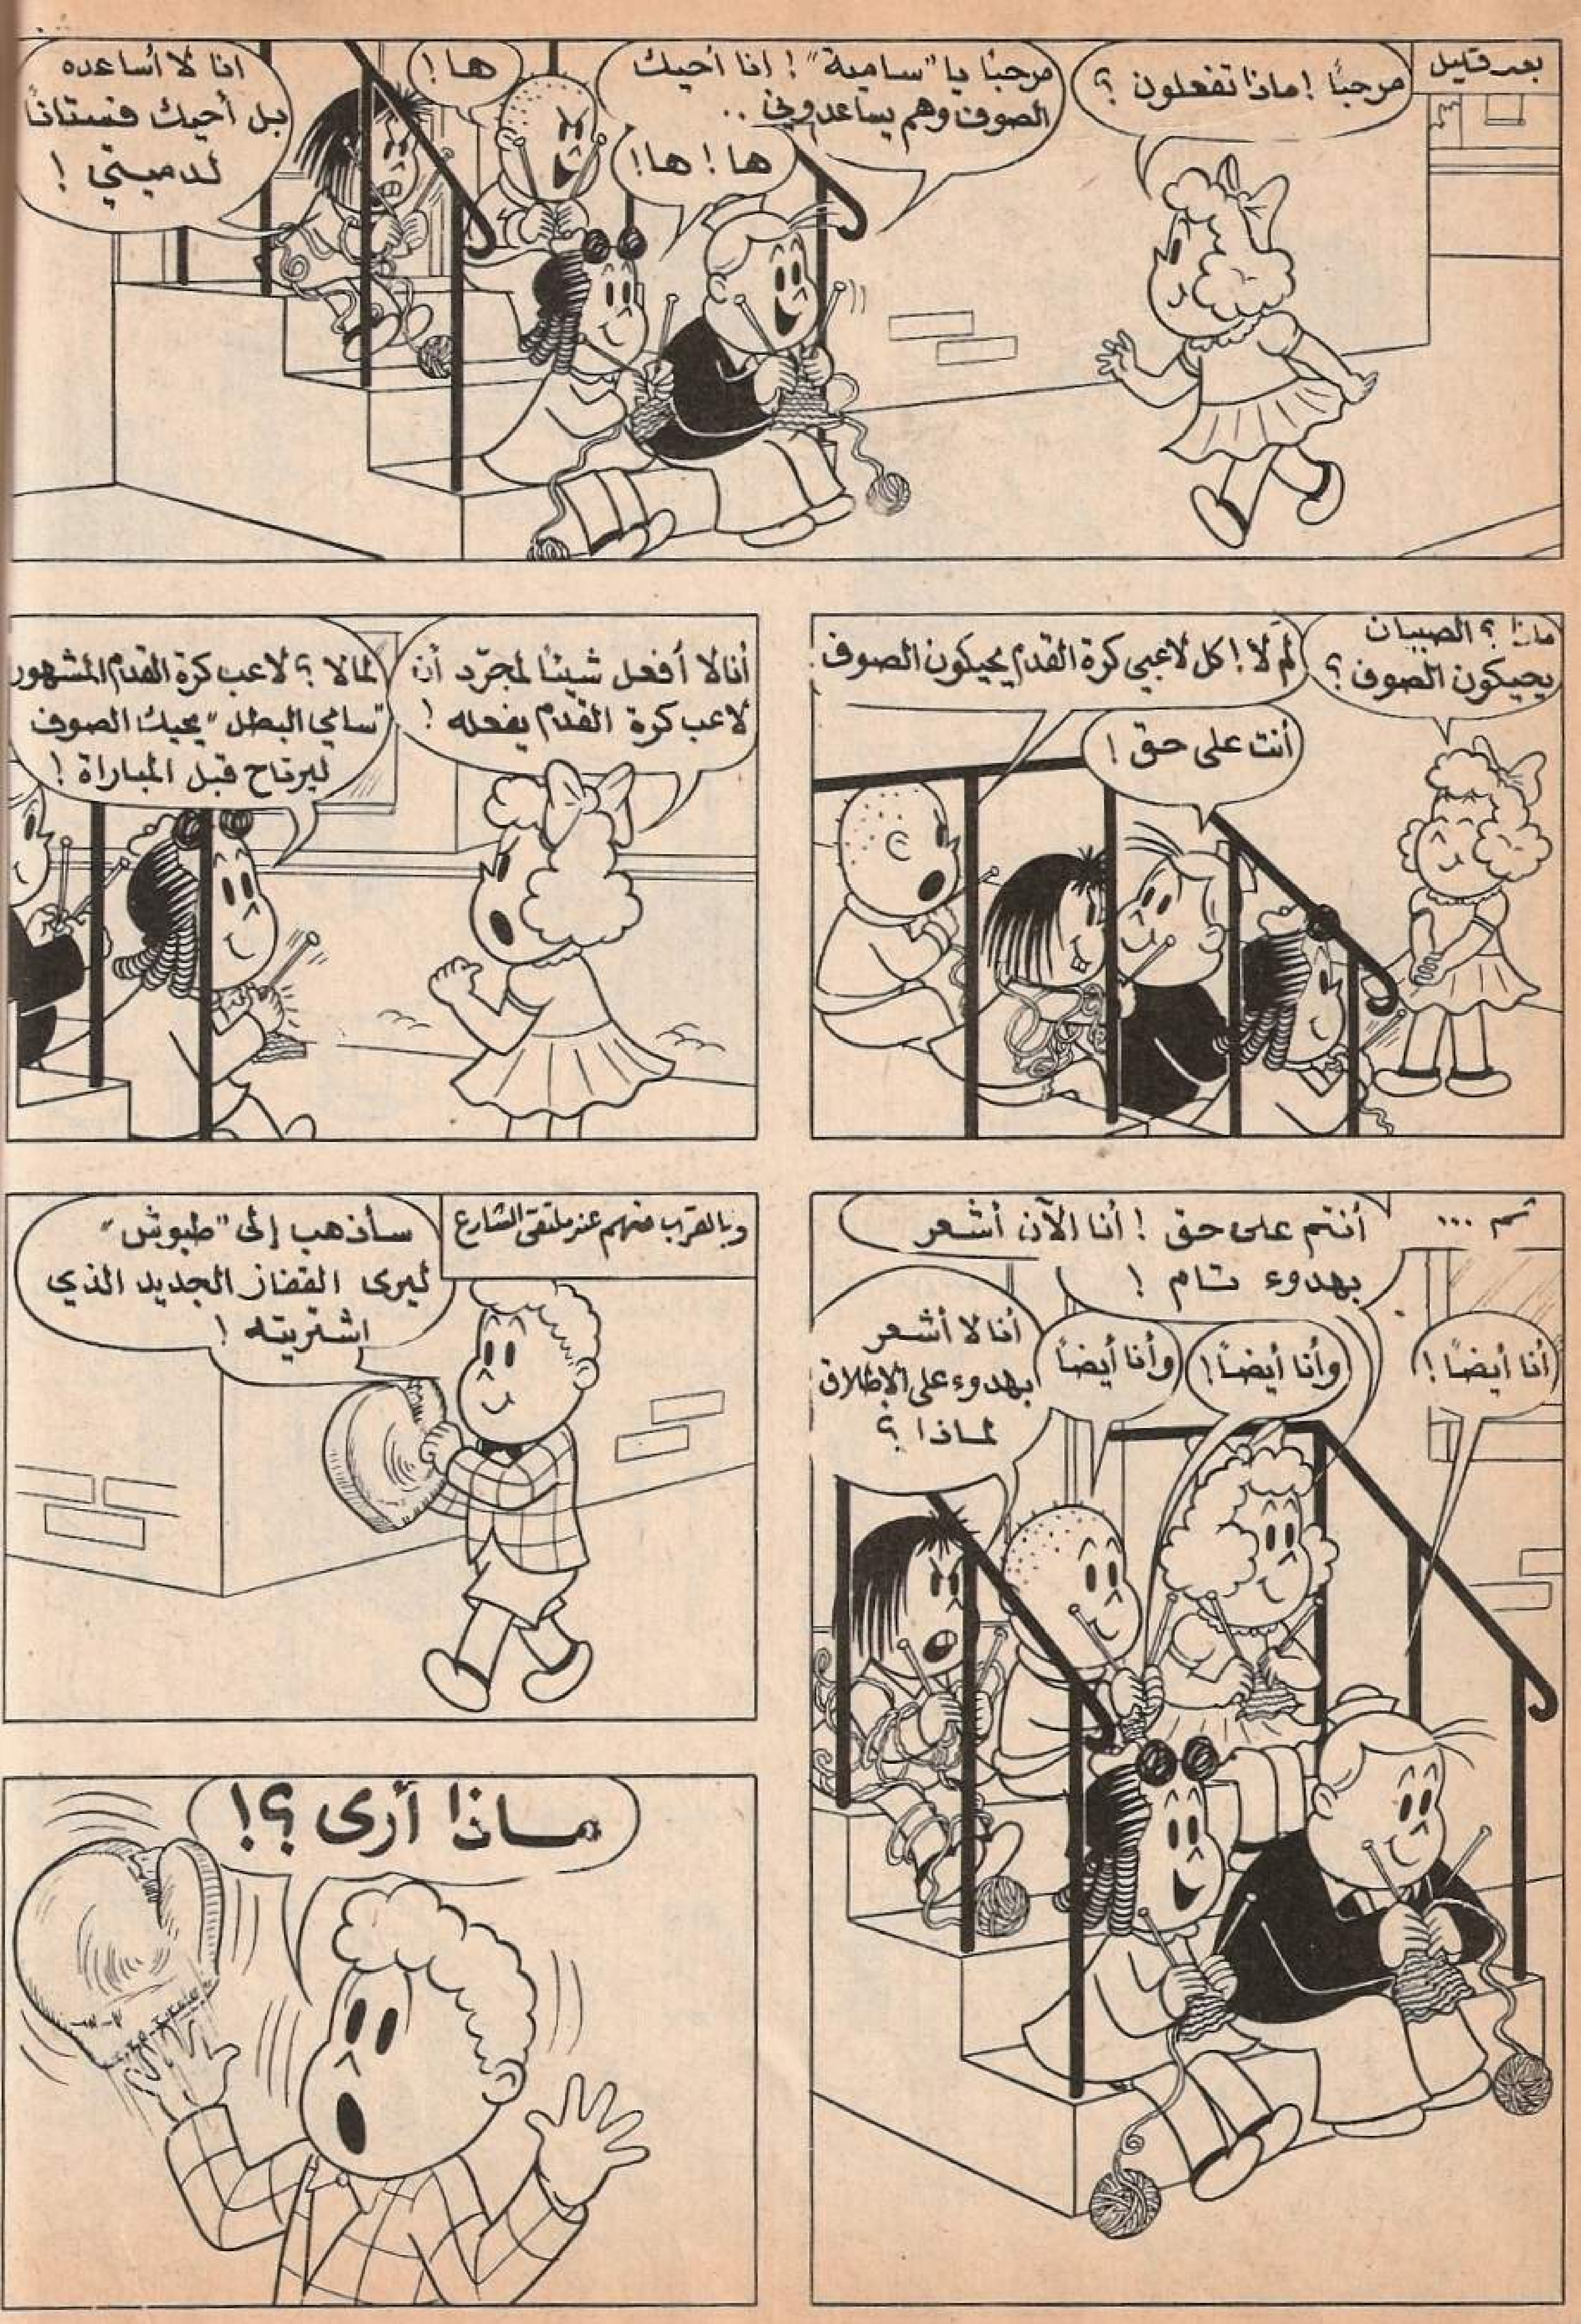 بعد قليل
مرحبًا ! ماذا تفعلون ؟
مرحبًا يا "سامية" ! انا أحيك
الصوف وهم يساعدوني ..
ها ! ها !
ها !
انا لا أساعده
بل أحيك فستانًا
لدميتي !
ماذا ؟ الصبيان
يحيكون الصوف ؟
لم لا ! كل لاعبي كرة القدم يحيكون الصوف !
أنت على حق !
أنا لا أفعل شيئًا لمجرّد أن
لاعب كرة القدم يفعله !
لما لا ؟ لاعب كرة القدم المشهور
"سامي البطل" يحيك الصوف
ليرتاح قبل المباراة !
ثم ...
أنتم على حق ! أنا الآن أشعر
بهدوء تام !
أنا أيضاً !
وأنا أيضاً !
وأنا أيضاً
أنا لا أشعر
بهدوء على الإطلاق
لماذا ؟
وبالقرب منهم عند ملتقى الشارع
سأذهب إلى "طبوش"
ليرى القفاز الجديد الذي
اشتريته !
ماذا أرى ؟!